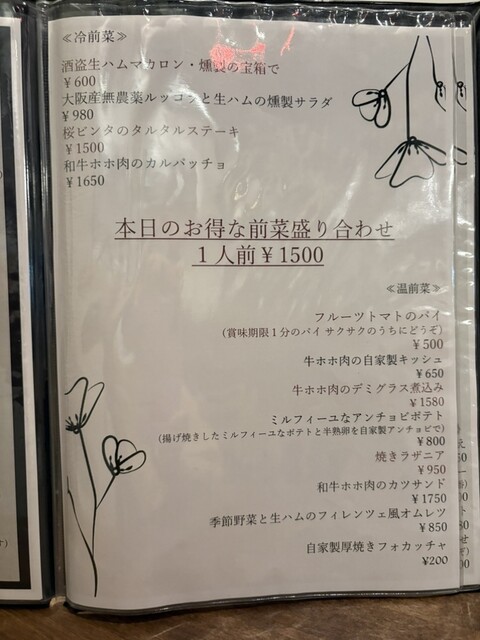 ≪冷前菜≫
酒盗生ハムマカロン・燻製の宝箱で
¥600
大阪産無農薬ルッコラと生ハムの燻製サラダ
¥980
桜ビンタのタルタルステーキ
¥1500
和牛ホホ肉のカルパッチョ
¥1650
本日のお得な前菜盛り合わせ
1人前¥1500
≪温前菜≫
フルーツトマトのパイ
(賞味期限1分のパイ サクサクのうちにどうぞ)
¥500
牛ホホ肉の自家製キッシュ
¥650
牛ホホ肉のデミグラス煮込み
¥1580
ミルフィーユなアンチョビポテト
(揚げ焼きしたミルフィーユなポテトと半熟卵を自家製アンチョビで)
¥800
焼きラザニア
¥950
和牛ホホ肉のカツサンド
¥1750
季節野菜と生ハムのフィレンツェ風オムレツ
¥850
自家製厚焼きフォカッチャ
¥200